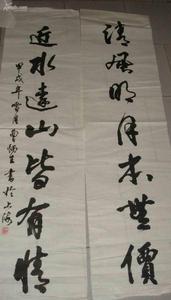 清風明月本無價
近水遠山皆有情
甲戌年雪月 書於上海